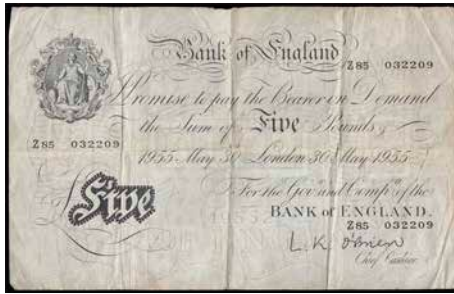 Bank of England
Z85 032209
Promise to pay the Bearer on Demand
the Sum of Five Pounds
Z85 032209
1955 May 30 London 30 May 1955
For the Govr. and Compa. of the
Five
BANK of ENGLAND.
Z85 032209
L. K. O'Brien
Chief Cashier